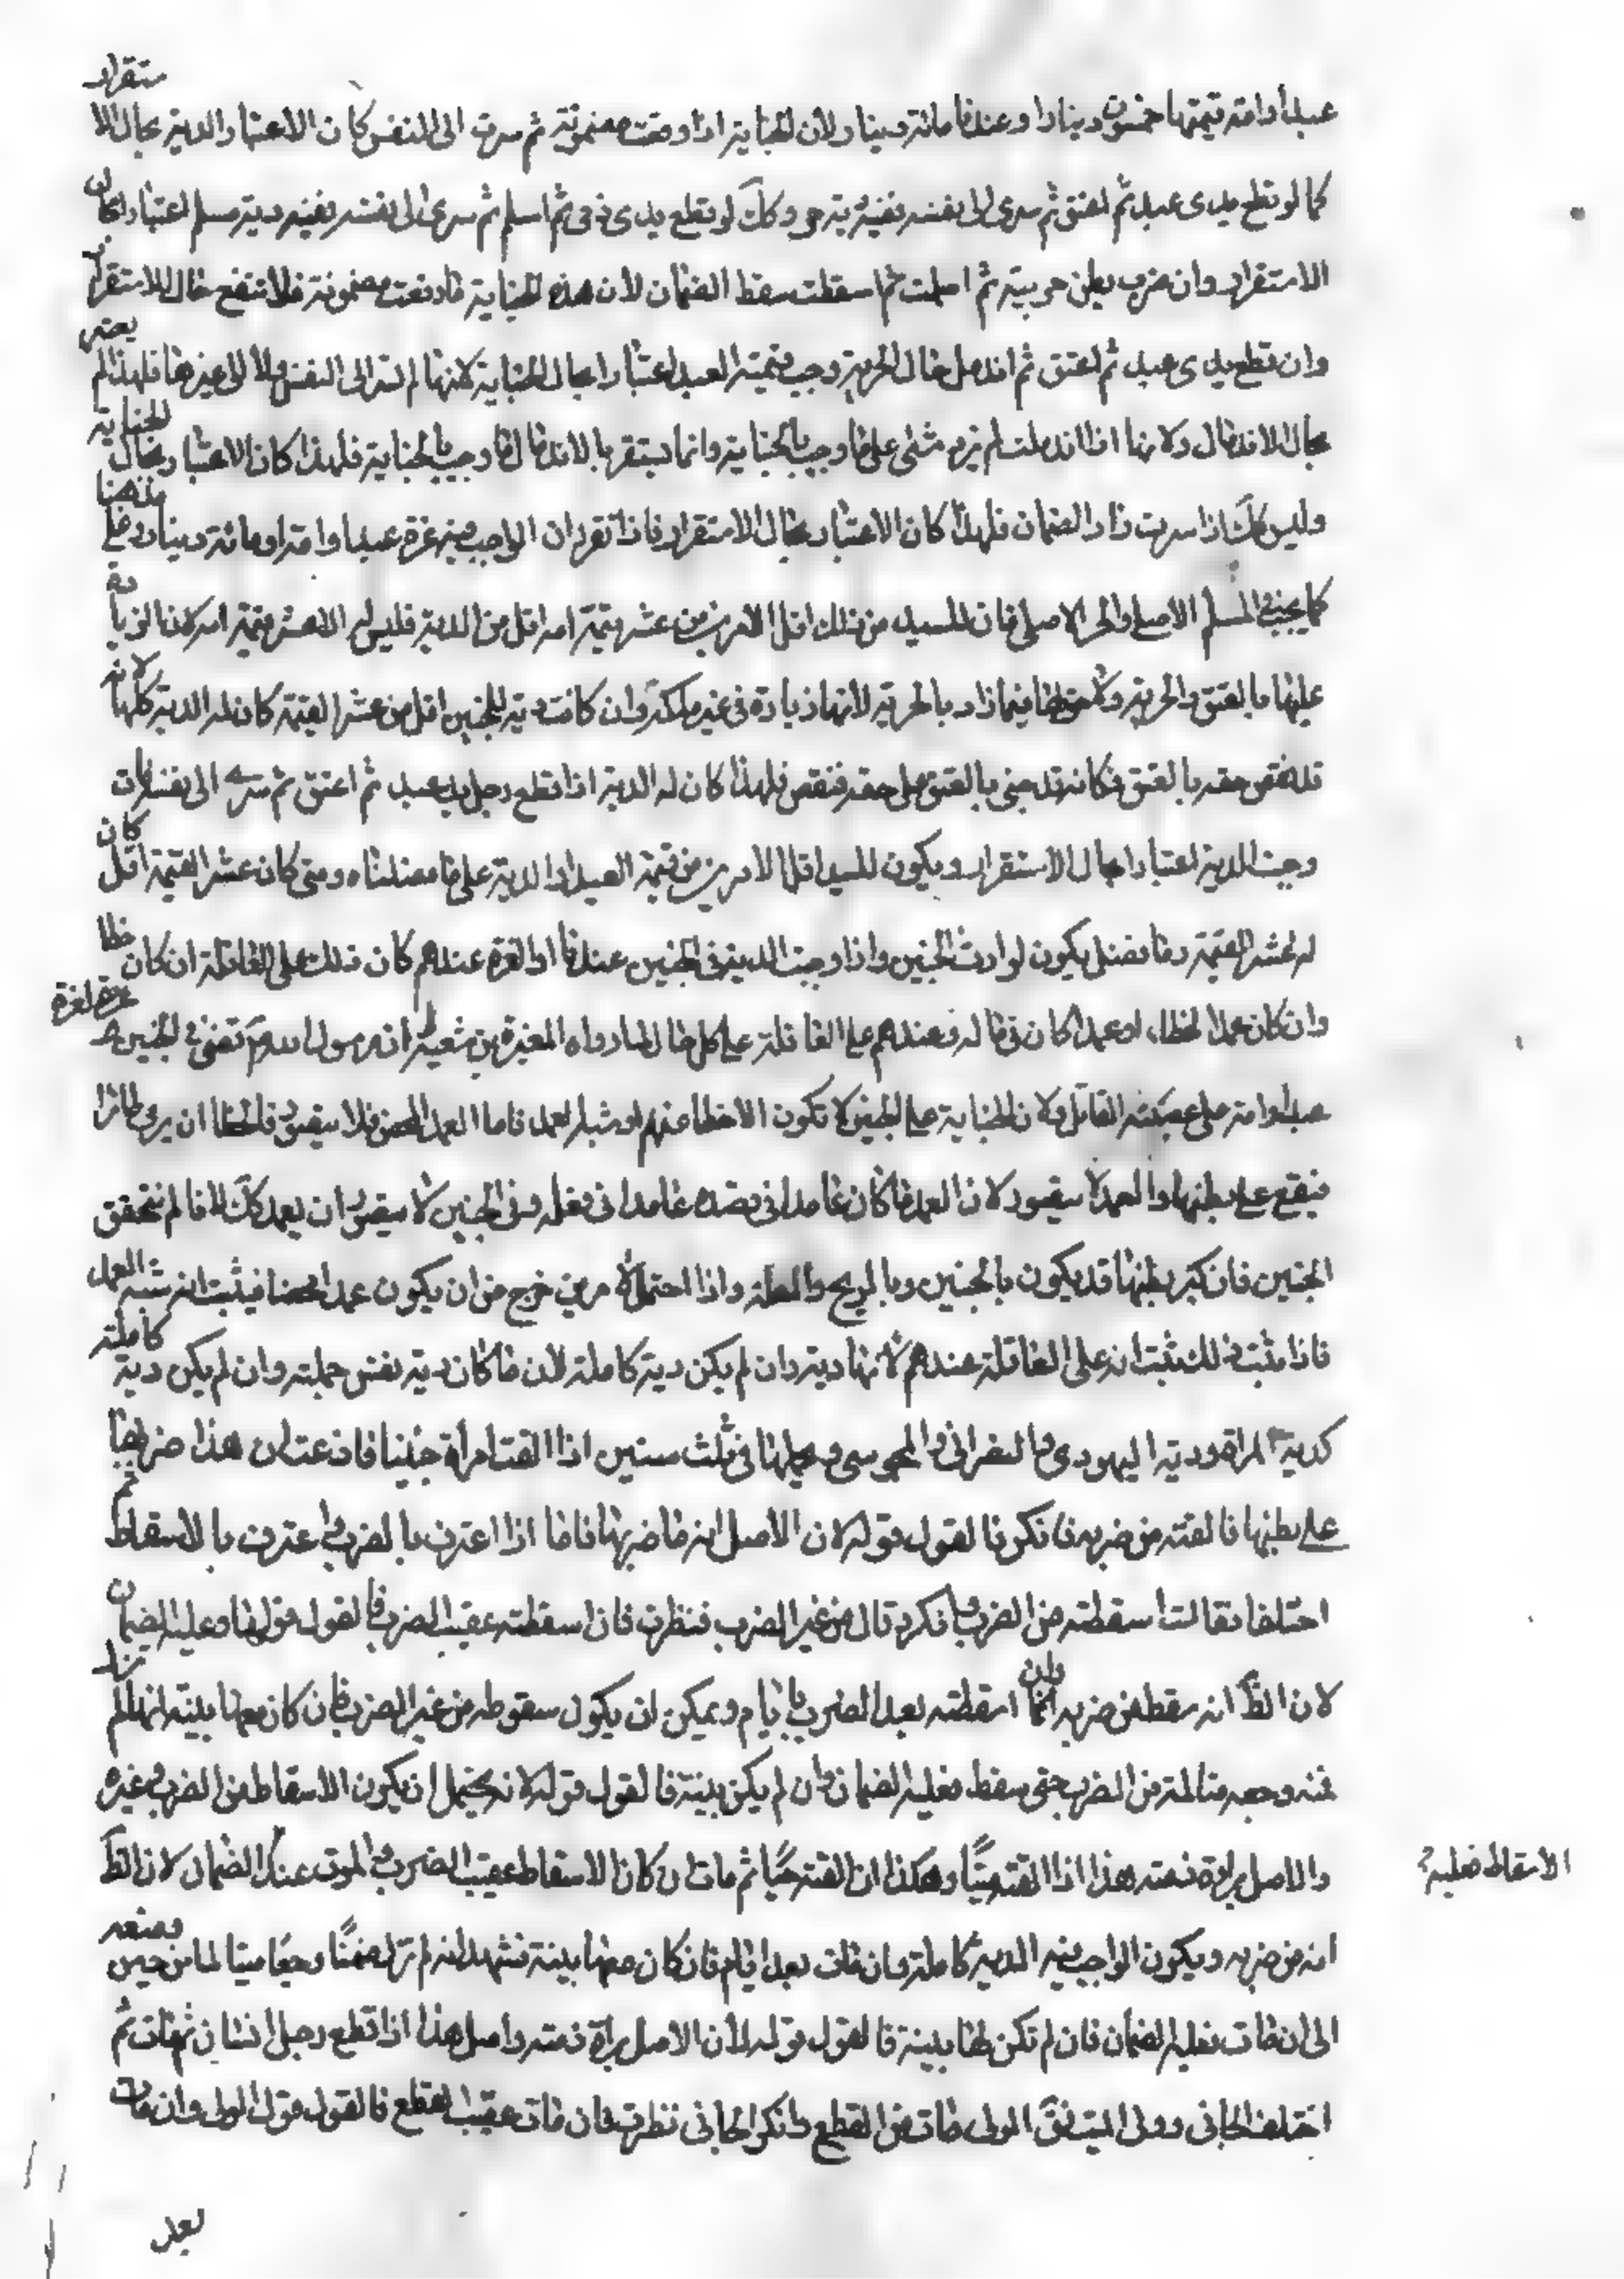 عبدا أو امة قيمتها خمسون دينارا وعندنا مائة دينار ولان الجناية اذا وقعت مضمونة ثم سرت الى النفس كان الاعتبار الدية بحال الاستقرار
كما لو قطع يدى عبد ثم اعتق ثم سرى الى نفسه ففيه دية حر وكك لو قطع يدى ذمى ثم اسلم ثم سرى الى نفسه ففيه دية مسلم اعتبارا بحال
الاستقرار وان ضرب بطن حربية ثم اسلمت ثم اسقطت سقط الضمان لان هذه الجناية ما وقعت مضمونة فلا تنفع حال الاستقرار
وان قطع يدى عبد ثم اعتق ثم اندمل حال الحرية وجب قيمة العبد اعتبارا بحال الجناية لانها لم تسر الى النفس ولا الى غيرها فلهذا لم يعتبر
بحال الاندمال ولانها اذا اندملت لم يزد شئ على ما وجب بالجناية وانما يستقر بالاندمال ما وجب بالجناية فلهذا كان الاعتبار بحال الجناية
وليس كك اذا سرت زاد الضمان فلهذا كان الاعتبار بحال الاستقرار فاذا تقرر ان الواجب فيه غرة عبد او امة او مائة دينار على مذهبنا
كما يجب فى المسلم الاصلى والحر الاصلى فان للسيد من ذلك اقل الامرين من عشر قيمة امه اقل من الدية فليس له الا عشر قيمة امه لان الزيادة
عليها بالعتق والحرية ولا حق له فيما زاد بالحرية لانها زيادة فى غير ملكه وان كانت دية الجنين اقل من عشر القيمة كان له الدية كلها لانه
قد نقص حقه بالعتق فكانه قد جنى بالعتق على حقه فنقص فلهذا كان له الدية اذا قطع رجل يد عبد ثم اعتق ثم سرى الى نفسه فمات
وجبت الدية اعتبارا بحال الاستقرار ويكون للسيد اقل الامرين من قيمة العبد او الدية على ما فصلناه ومتى كان عشر القيمة اقل كان
له عشر القيمة وما فضل يكون لوارث الجنين واذا وجبت الدية فى الجنين عندنا او الغرة عندهم كان ذلك على العاقلة ان كان خطا
وان كان عمد الخطاء او عمدا كان فى ماله وعندهم على العاقلة على كل حال لما رواه المغيرة بن شعبة ان رسول الله ص قضى فى الجنين بغرة
عبد او امة على عصبته القاتل ولان الجناية على الجنين لا تكون الا خطا عندهم او شبه العمد فاما العمد المحض فلا يتصور فالخطا ان يرمى طائرا
فيقع على بطنها والعمد لا يتصور لان العمد ما كان عامدا فى قصده عامدا فى فعله وفى الجنين لا يتصور ان يعمد كك لانا لم نتحقق
الجنين فان كبر بطنها قد يكون بالجنين وبالريح والعلة واذا احتمل الامرين خرج من ان يكون عمدا محضا فيثبت انه شبه العمد
فاذا ثبت ذلك ثبت انه على العاقلة عندهم لانها دية وان لم يكن دية كاملة لان ما كان دية نفس حملته وان لم يكن دية كاملة
كدية المراة ودية اليهودى والنصرانى والمجوسى ويحملها فى ثلث سنين اذا القت امرأة جنينا فادعت ان هذا ضربها
على بطنها فالقته من ضربه فانكر فالقول قوله لان الاصل انه ما ضربها فاما اذا اعترف بالضرب واعترف بالاسقاط ثم
اختلفا فقالت اسقطته من الضرب وانكر وقال من غير الضرب فنظرت فان اسقطته عقيب الضرب فالقول قولها وعليه الضمان
لان الظ انه سقط من ضربه وان اسقطته بعد الضرب بايام ويمكن ان يكون سقوطه من غير الضرب فان كان معها بينة انها لم تزل
ضمنه وجعه متالمة من الضرب حتى سقط فعليه الضمان وان لم يكن بينة فالقول قوله لانه يحتمل ان يكون الاسقاط من الضرب وغيره
والاصل براءة ذمته هذا اذا القته ميتا وهكذا ان القته حيا ثم مات ان كان الاسقاط عقيب الضرب والموت عند الضمان لان الظ
الاسقاط فعليه
انه من ضربه ويكون الواجب فيه الدية كاملة وان مات بعد ايام فان كان معها بينة تشهد انه لم تزل ضمنا وجعا متالما من حين وضعه
الى ان مات فعليه الضمان فان لم تكن لها بينة فالقول قوله لأن الاصل براءة ذمته واصل هذا اذا قطع رجل انسان ثم مات ثم
اختلف الجانى وولى الميت فق الولى مات من القطع وانكر الجانى نظرت فان مات عقيب القطع فالقول قول الولى وان مات
بعد